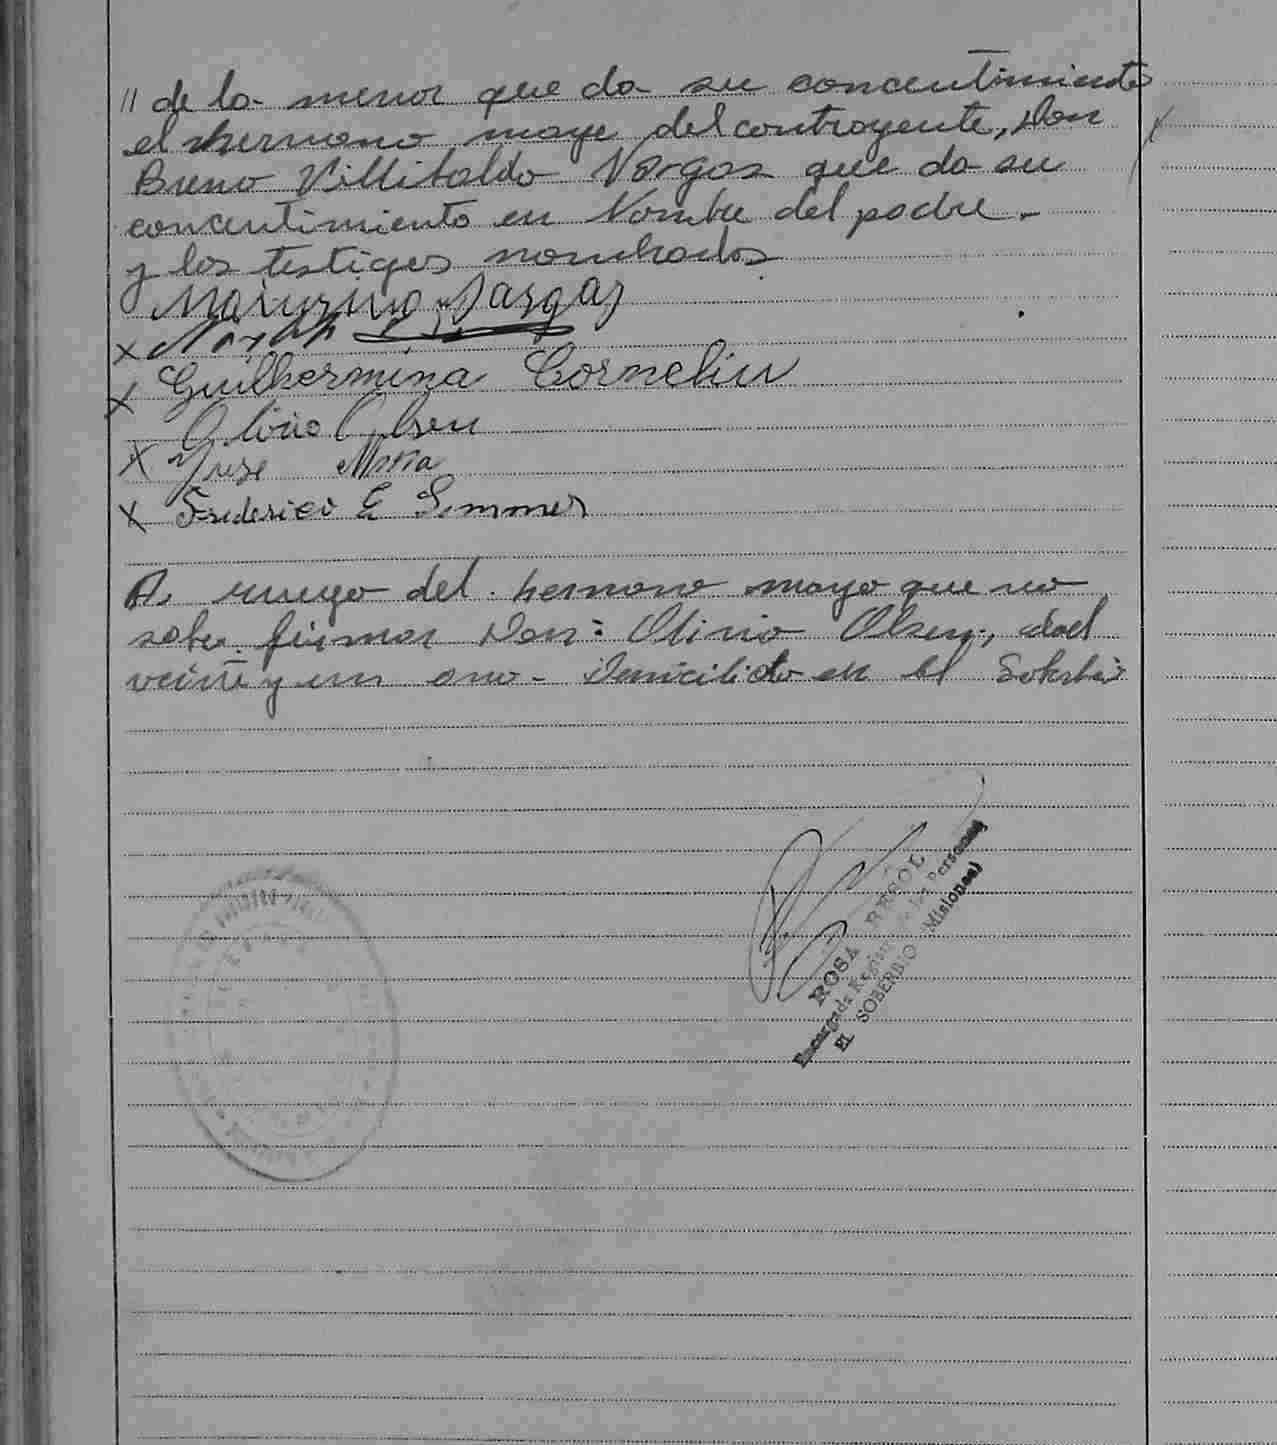 // de la menor que da su concentimiento
el hermano mayo del contrayente, Don
Breno Villibaldo Vargas que da su
concentimiento en Nombre del padre -
y los testigos nombrados
Vargas
x
x Guilhermina Cornelius
Olirio Olsen
x Mota
x Frederico E Semmer
A ruego del hermano mayo que no
sabe firmar Don: Olirio Olsen, edad
veinte y un ano - Domicilido en el Soberbio
ROSA
Encargada Registro de las Personas
EL SOBERBIO (Misiones)